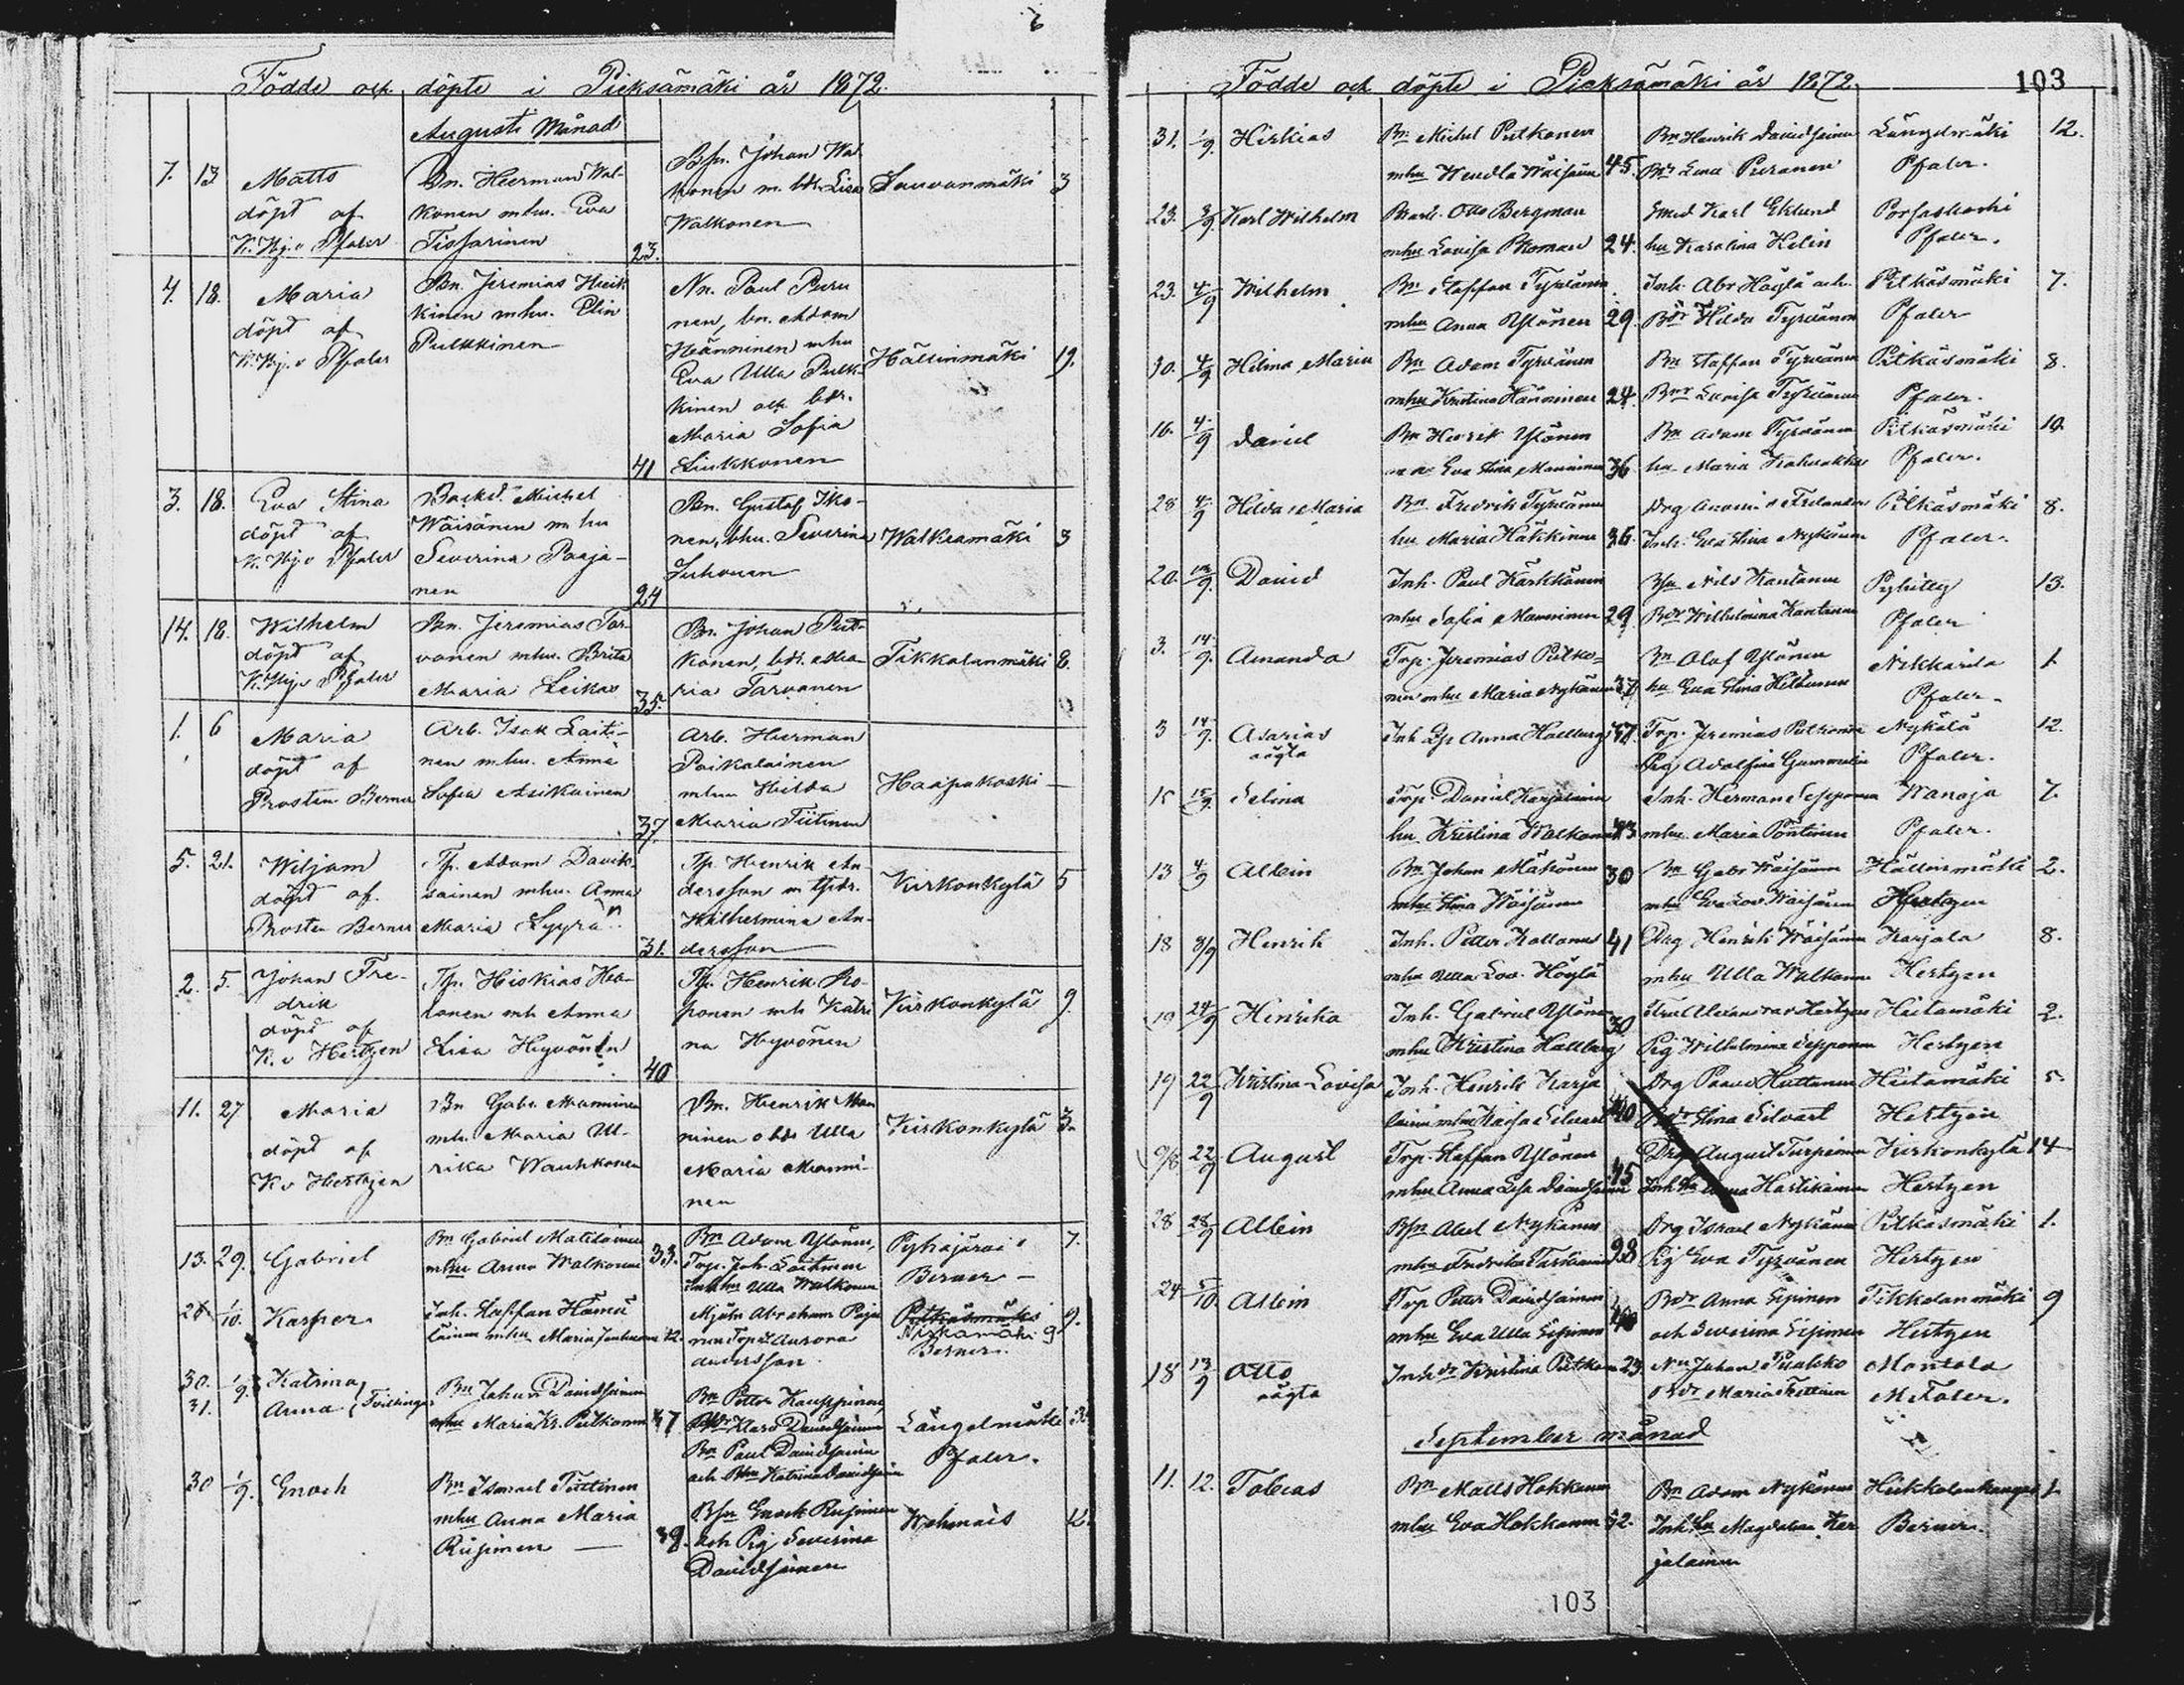 Födde och döpte i Pieksämäki år 1872.
Augusti Månad
7. 13 Matts döpt af K. Hj. v Pfaler
Bn. Herman Wal-
konen mhu. Eva
Tissarinen 23.
Bsn. Johan Wal
konen m. bdr. Lisa
Walkonen
Sauvanmäki 3
4. 18. Maria döpt af K. Hj. v Pfaler
Bn. Jeremias Heik
kinen mhu. Elin
Pulkkinen 41
Nn. Paul Puru
nen, bn. Adam
Hänninen mhu
Eva Ulla Pulk-
kinen och bdr.
Maria Sofia
Liukkonen
Hällinmäki 19.
3. 18. Eva Stina döpt af K. Hj. v Pfaler
Backst. Michel
Wäisänen m hu
Severina Paaja-
nen 24
Bn. Gustaf Iko-
nen, bhu. Severina
Suhonen
Walkeamäki 3
14. 18. Wilhelm döpt af K. Hj. v Pfaler
Bn. Jeremias Tar-
vonen mhu. Brita
Maria Leikas 35.
Bn. Johan Put-
konen, bdr. Ma-
ria Tarvonen
Tikkalanmäki 8.
1. 6 Maria döpt af Prosten Berner
Arb. Isak Laiti-
nen mhu. Anna
Sofia Asikainen 37.
Arb. Herman
Poikalainen
mhu Hilda
Maria Tiitinen
Haapakoski —
5. 21. Wiljam döpt af Prosten Berner
Tp. Adam Davit-
sainen mhu. Anna
Maria Lyyra 31.
Tp. Henrik An-
dersson m tpdr.
Wilhelmina An-
dersson
Kirkonkylä 5
2. 5. Johan Fre-
drik döpt af K. v Hertzen
Tp. Hiskias Hea-
lonen mh Anna
Lisa Hyvönen 40
Tp. Henrik Ro-
ponen mh Katri
na Hyvönen
Kirkonkylä 9.
11. 27 Maria döpt af K v Hertzen
Bn Gabr. Manninen
mh. Maria Ul-
rika Wauhkonen
Bn. Henrik Man
ninen o bdr Ulla
Maria Manni-
nen
Kirkonkylä 3.
13. 29. Gabriel
Bn Gabriel Matilainen
mhu Anna Walkonen 33.
Bn Adam Ylönen,
Torp. Joh. Laitinen
Ulla Walkonen
Pyhäjärvi 7.
Berner —
28 1/10. Kasper
Inh. Staffan Hämä
läinen mhu Maria 42.
Mjöln. Abraham
Aurora
Andersson.
Pitkäsmäki 9.
Niskamäki 9
Berner.
30. 31. 1/9. Katrina, Anna } Tvillingar
Bn Johan Davidsainen
mhu Maria Kr. Putkonen 37
Bn Petter Kauppinen
Bdr Klara Davidsainen
Bn Paul Davidsainen
och Bhu Katrina Davidsainen
Längelmäki 3.
Pfaler.
30 1/9. Enoch
Bn Ismael Tiittinen
mhu Anna Maria
Riipinen — 39.
Bsn Enoch Riipinen
och Pig Severina
Davidsainen
Wehmais 12.
Födde och döpte i Pieksämäki år 1872.
103
31. 1/9. Hiskias
Bn Michel Putkonen
mhu Hendla Wäisänen 45.
Bn Henrik Davidsainen
Bdr Lena Puranen
Längelmäki 12.
Pfaler.
23. 3/9. Karl Wilhelm
Otto Bergman
mhu Lovisa Broman 24.
Smed Karl Eklund
hu Karolina Helin
Porsaskoski
Pfaler.
23. 4/9 Wilhelm
Bn Staffan Tyrvänen
mhu Anna Ylönen 29.
Inh. Abr Häylä och
Bdr Hilda Tyrvänen
Pitkäsmäki 7.
Pfaler
30. 4/9 Helma Maria
Bn Adam Tyrvänen
mhu Kristina Hänninen 24.
Bn Staffan Tyrvänen
Bdr Lovisa Tyrvänen
Pitkäsmäki 8.
Pfaler.
16. 4/9 David
Bn Henrik Ylönen
Eva Lisa Manninen 36
Bn Adam Tyrvänen
hu Maria
Pitkäsmäki 10.
Pfaler.
28 4/9 Hilda Maria
Bn Fredrik Tyrvänen
hu Maria Häkkinen 36.
Drg
Inh. Eva Stina Nykänen
Pitkäsmäki 8.
Pfaler.
20. 13/9. David
Inh. Paul Kärkkänen
mhu Sofia Manninen 29.
Bsn Nils Kantanen
Bdr Wilhelmina Kantanen
13.
Pfaler
3. 14/9. Amanda
Torp. Jeremias Putko-
nen mhu Maria Nykänen 37
Bn Olof Ylönen
hu Eva Stina Hiltunen
Nikkarila 1.
Pfaler.
3 14/9. Asarias oägta
Inh Anna Hallberg
Torp. Jeremias Putkonen
Pig Adolfina
Nykälä 12.
Pfaler.
15 15/9. Selina
Torp. Daniel Karjalainen
hu Kristina Walkonen 43.
Inh. Herman Sepponen
mhu Maria Pöntinen
Wanaja 7.
Pfaler.
13 4/9 Albin
Bn Johan Mähönen 30
mhu Stina Wäisänen
Bn Gabr Wäisänen
mhu Eva Lov Wäisänen
Hällinmäki 2.
Hertzen
18 8/9 Henrik
Inh. Petter Kollanus 41
mhu Ulla Lov. Höylä
Drg Henrik Wäisänen
mhu Ulla Walkonen
Karjala 8.
Hertzen
19 24/9 Hinrika
Inh. Gabriel Ylönen 30
mhu Kristina Hallberg
Alexandra v Hertzen
Pig Wilhelmina Sepponen
Hietamäki 2.
Hertzen
19 22/9 Kristina Lovisa
Inh. Henrik Karja
lainen mhu Kaisa Silvast 40
Drg Paavo Huttunen
Bdr Stina Silvast
Hietamäki 5.
Hertzen
9/8 22/9 August
Torp. Staffan Ylönen
mhu Anna Lisa Davidsainen 45
Drg August Turpeinen
Inh. hu Anna Hartikainen
Kirkonkylä 14
Hertzen
28 28/9 Albin
Bsn Abel Nykänen
mhu Fredrika 28
Drg Israel Nykänen
Pig Eva Tyrvänen
Pitkäsmäki 1.
Hertzen
24 5/10 Albin
Torp Petter Davidsainen
mhu Eva Ulla Sipinen 40
Bdr Anna Sipinen
och Severina Sipinen
Tikkalanmäki 9
Hertzen
18 13/9 Otto oägta
Inh dr Kristina Putkonen 23.
Nn Johan Puukko
Bdr Maria Tiittinen
Montola
M. Faler.
September månad
11. 12. Tobias
Bn Matts Hokkanen
mhu Eva Hokkanen 42.
Bn Adam Nykänen
Inh hu Magdalena Kar
jalainen
Hiekkalankangas 1
Berner.
103